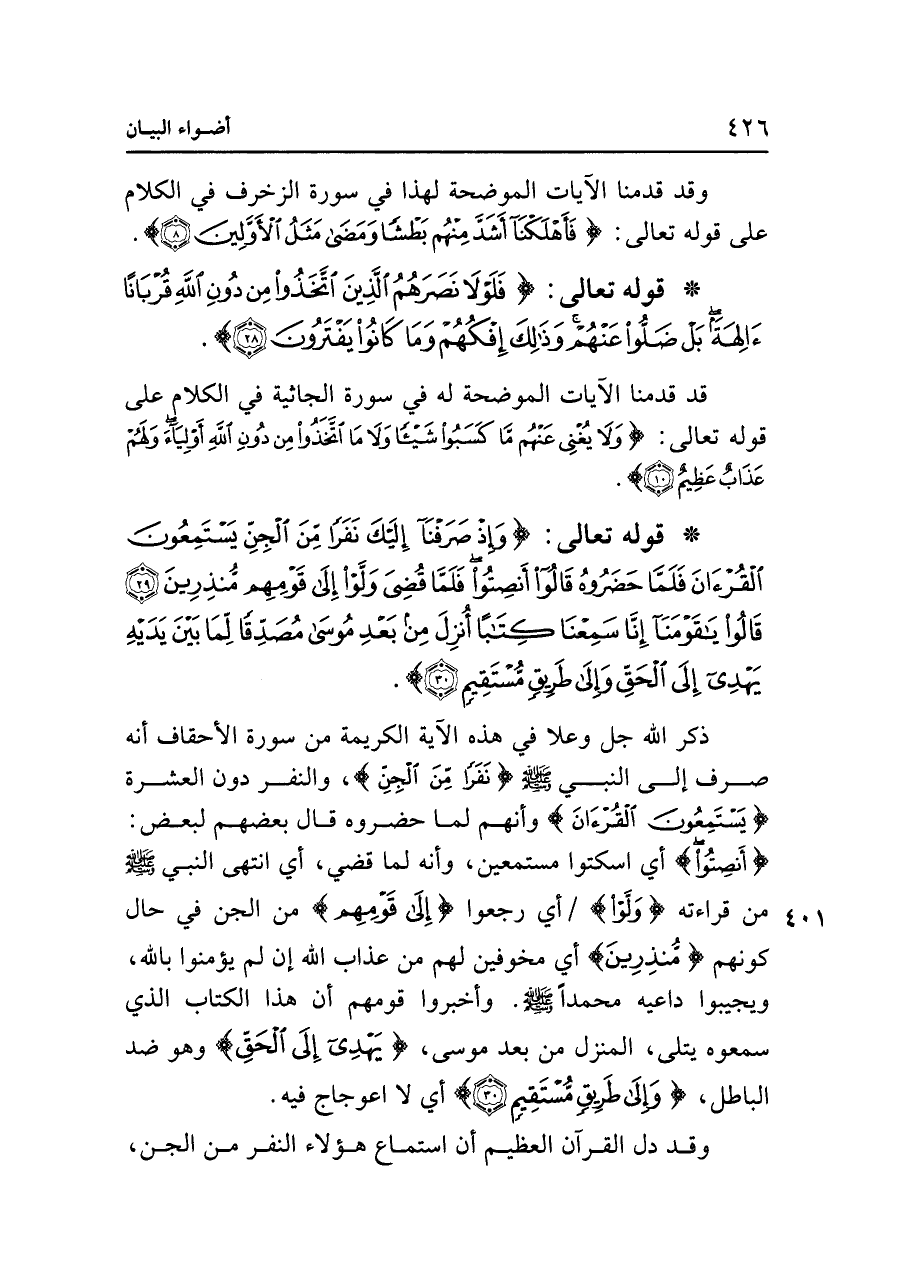 ٤٢٦ أضواء البيان
وقد قدمنا الآيات الموضحة لهذا في سورة الزخرف في الكلام
على قوله تعالى: ﴿ فَأَهۡلَكۡنَآ أَشَدَّ مِنۡهُم بَطۡشٗا وَمَضَىٰ مَثَلُ ٱلۡأَوَّلِينَ ٨﴾.
* قوله تعالى: ﴿ فَلَوۡلَا نَصَرَهُمُ ٱلَّذِينَ ٱتَّخَذُواْ مِن دُونِ ٱللَّهِ قُرۡبَانًا
ءَالِهَةَۢۖ بَلۡ ضَلُّواْ عَنۡهُمۡۚ وَذَٰلِكَ إِفۡكُهُمۡ وَمَا كَانُواْ يَفۡتَرُونَ ٢٨﴾.
قد قدمنا الآيات الموضحة له في سورة الجاثية في الكلام على
قوله تعالى: ﴿ وَلَا يُغۡنِي عَنۡهُم مَّا كَسَبُواْ شَيۡـٔٗا وَلَا مَا ٱتَّخَذُواْ مِن دُونِ ٱللَّهِ أَوۡلِيَآءَۖ وَلَهُمۡ
عَذَابٌ عَظِيمٌ ١٠﴾.
* قوله تعالى: ﴿ وَإِذۡ صَرَفۡنَآ إِلَيۡكَ نَفَرٗا مِّنَ ٱلۡجِنِّ يَسۡتَمِعُونَ
ٱلۡقُرۡءَانَ فَلَمَّا حَضَرُوهُ قَالُوٓاْ أَنصِتُواْۖ فَلَمَّا قُضِيَ وَلَّوۡاْ إِلَىٰ قَوۡمِهِم مُّنذِرِينَ ٢٩
قَالُواْ يَٰقَوۡمَنَآ إِنَّا سَمِعۡنَا كِتَٰبًا أُنزِلَ مِنۢ بَعۡدِ مُوسَىٰ مُصَدِّقٗا لِّمَا بَيۡنَ يَدَيۡهِ
يَهۡدِيٓ إِلَى ٱلۡحَقِّ وَإِلَىٰ طَرِيقٖ مُّسۡتَقِيمٖ ٣٠﴾.
ذكر الله جل وعلا في هذه الآية الكريمة من سورة الأحقاف أنه
صرف إلى النبي ﷺ ﴿ نَفَرٗا مِّنَ ٱلۡجِنِّ ﴾، والنفر دون العشرة
﴿ يَسۡتَمِعُونَ ٱلۡقُرۡءَانَ ﴾ وأنهم لما حضروه قال بعضهم لبعض:
﴿ أَنصِتُواْۖ﴾ أي اسكتوا مستمعين، وأنه لما قضي، أي انتهى النبي ﷺ
من قراءته ﴿ وَلَّوۡاْ﴾ / أي رجعوا ﴿ إِلَىٰ قَوۡمِهِم﴾ من الجن في حال ٤٠١
كونهم ﴿ مُّنذِرِينَ﴾ أي مخوفين لهم من عذاب الله إن لم يؤمنوا بالله،
ويجيبوا داعيه محمداً ﷺ. وأخبروا قومهم أن هذا الكتاب الذي
سمعوه يتلى، المنزل من بعد موسى، ﴿ يَهۡدِيٓ إِلَى ٱلۡحَقِّ﴾ وهو ضد
الباطل، ﴿ وَإِلَىٰ طَرِيقٖ مُّسۡتَقِيمٖ ٣٠﴾ أي لا اعوجاج فيه.
وقد دل القرآن العظيم أن استماع هؤلاء النفر من الجن،